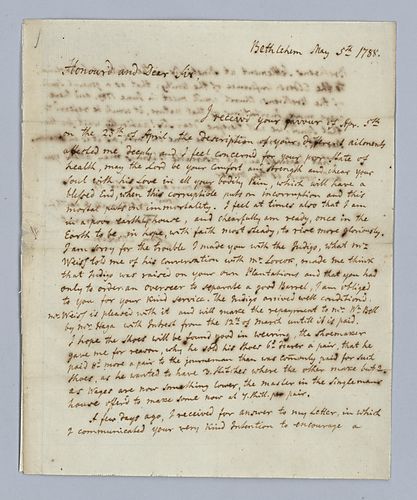 Bethlehem May 5th. 1788.
Honour'd and Dear Sir,
I received your favour of Apr. 5th
on the 23th of April, the description of your different ailments
affected me deeply and I feel concerned for your poor state of
health, may the Lord be your Comfort and strength and chear your
Soul with his Love in all your bodily Pain, which will have a
blessed End, when this corruptible puts on Incorruption, and this
mortal puts on immortality. I feel at times also that I am
in a poor earthly house, and chearfully am ready, once in the
Earth to be, in hope, with faith most steady, to rise more gloriously.
I am sorry for the trouble I made you with the Indigo, what Mr.
Weiss told me of his Conversation with Mr. made me think
that Indigo was raised on your own Plantations and that you had
only to order an overseer to separate a good Barrel, I am obliged
to you for your kind service. The Indigo arrived well conditiond.
Mr. Weiss is pleased with it and will make the repayment to Mr. Wm. Bell
by Mr. Haga with Intrest from the 12th of March untill it is paid.
I hope the Shoes will be found good in wearing, the Shoemaker
gave me for reason, why he sold his shoes 6d. dearer a pair, that he
paid 8d. more a pair to the journeman than was comonly paid for such
shoes, as he wanted to have 3 stitches where the other make but 2.
as Wages are now something lower, the master in the singlemens
house offerd to make some now at 7 shill. pr. pair.
A few days ago, I received for answer to my Letter, in which
I communicated your very kind Intention to encourage a